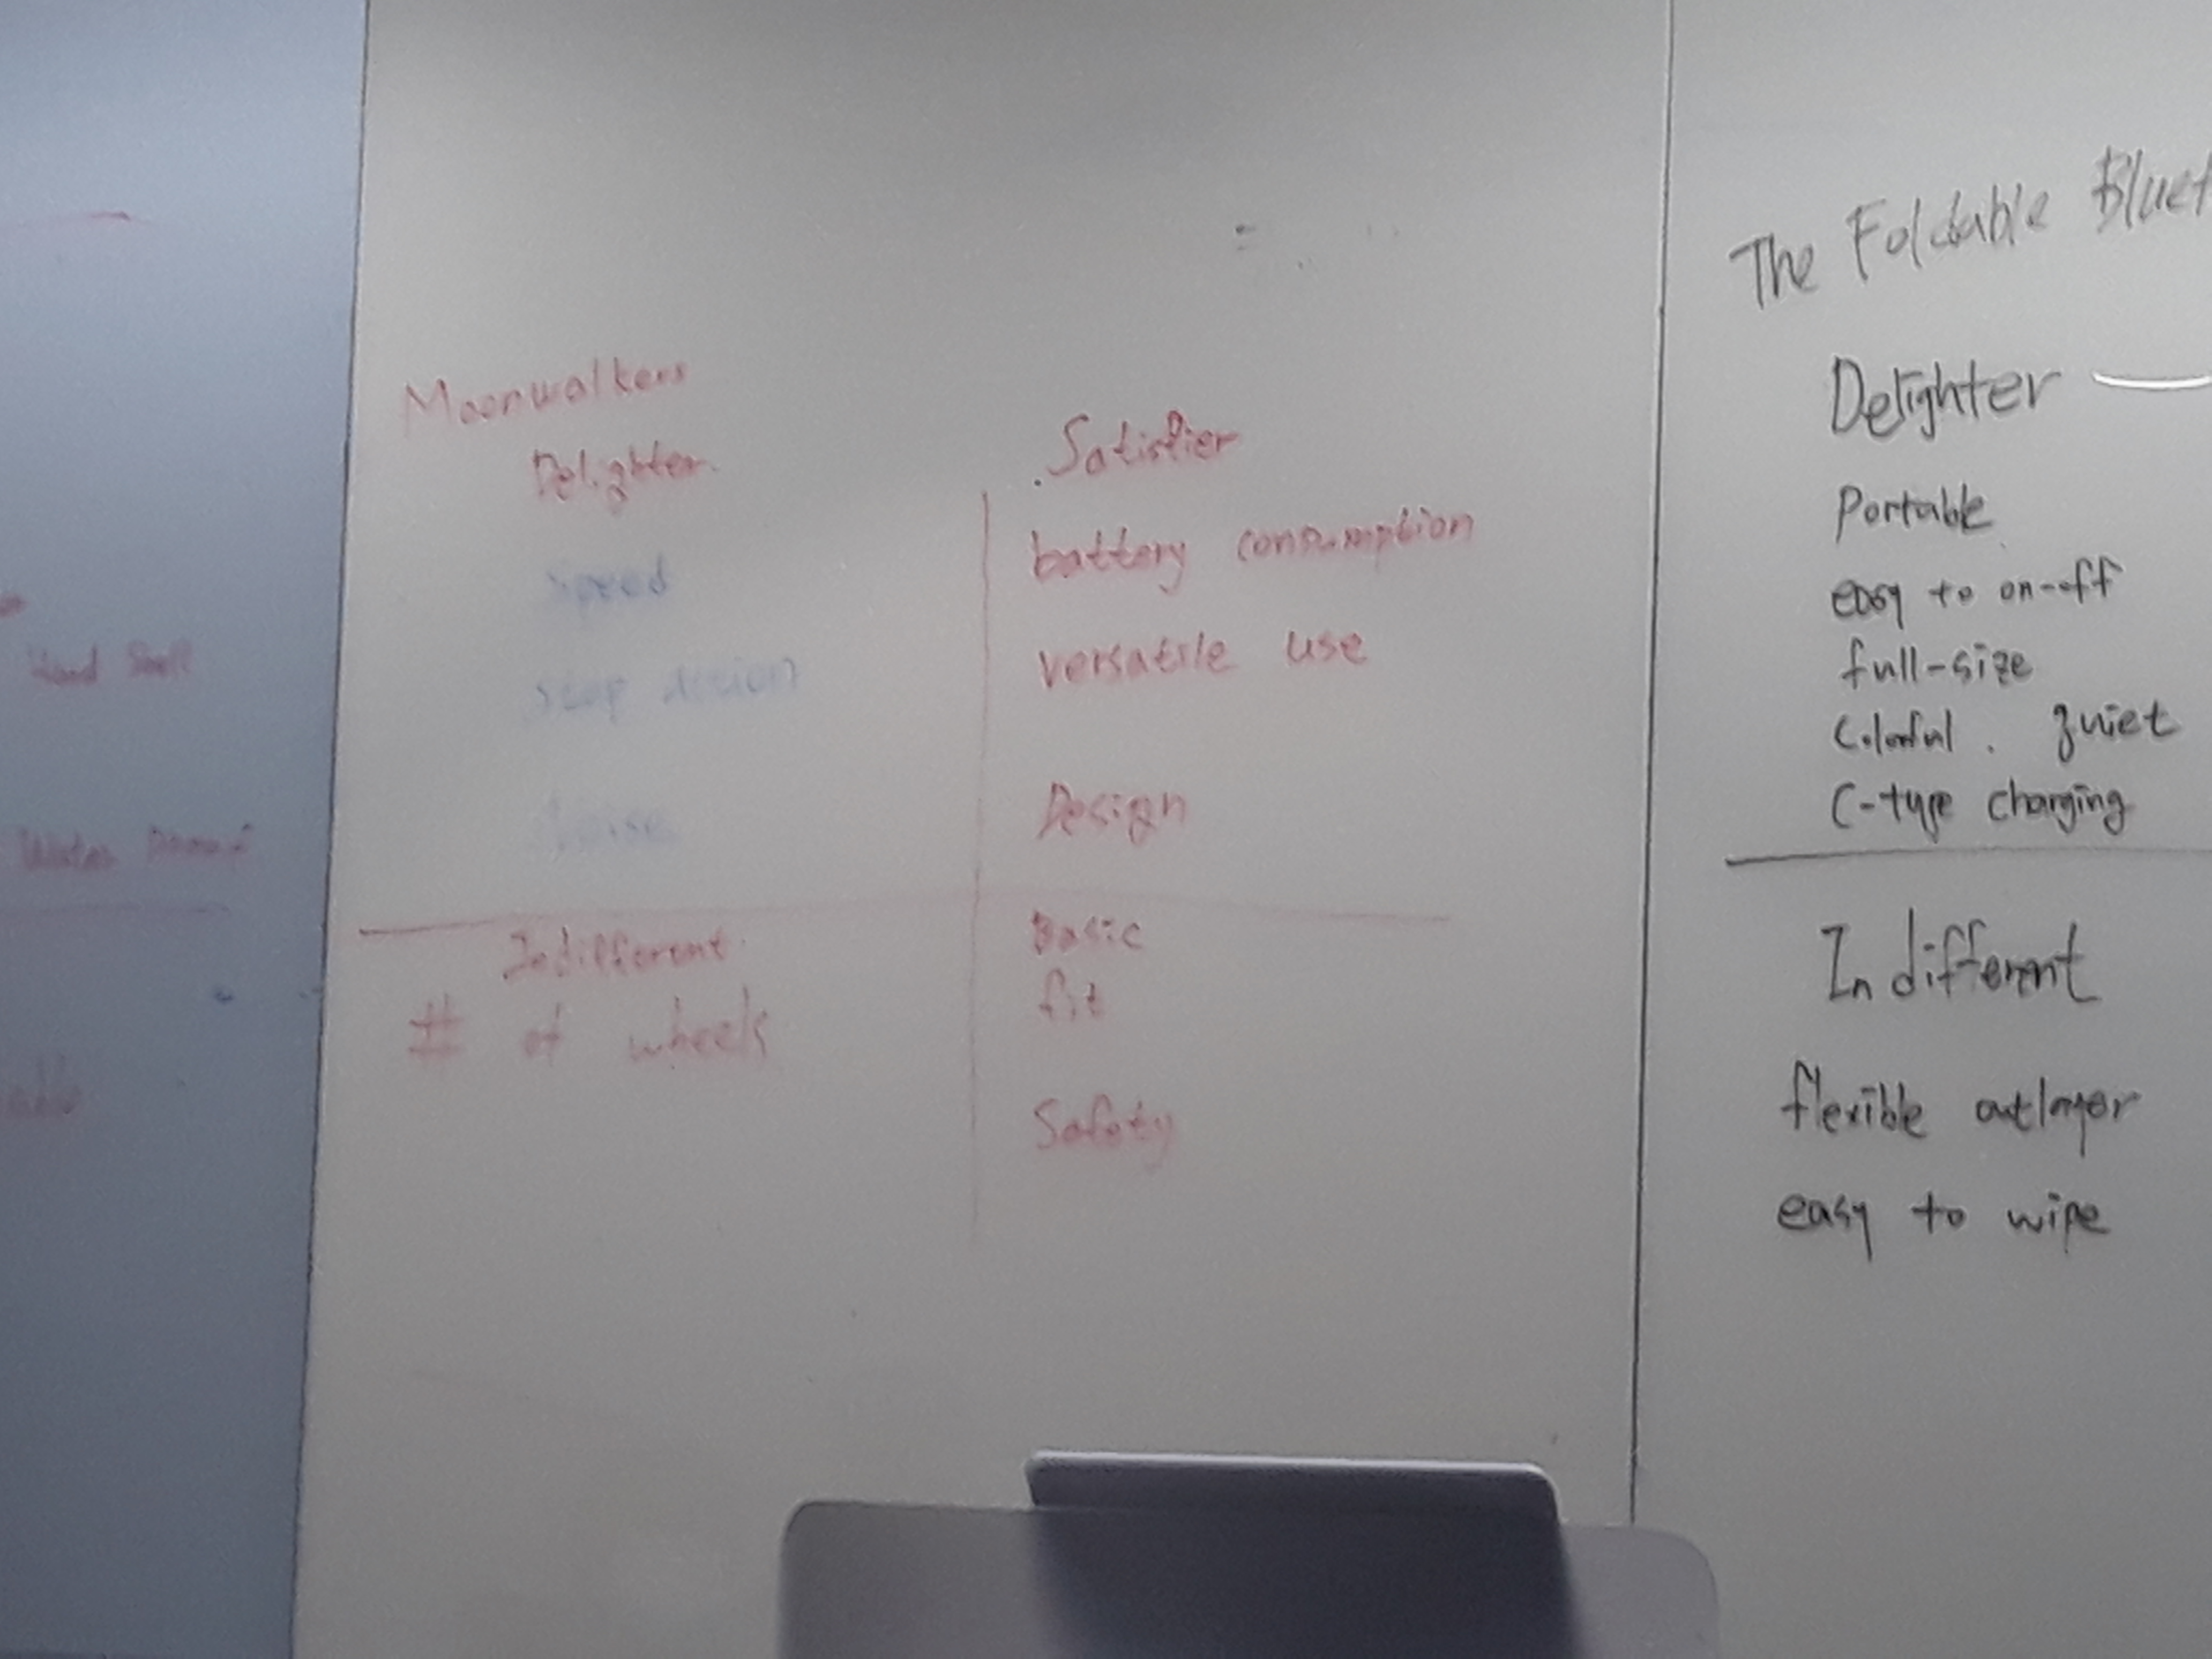 Hard Shell
Water Proof
Moonwalkers
Delighter.
Speed
Stop Action
Noise
Indifferent.
# of wheels
Satisfier
battery consumption
versatile use
Design
Basic
fit
Safety
The Foldable Bluet
Delighter
Portable
easy to on-off
full-size
Colorful. quiet
C-type charging
Indifferent
flexible outlayer
easy to wipe